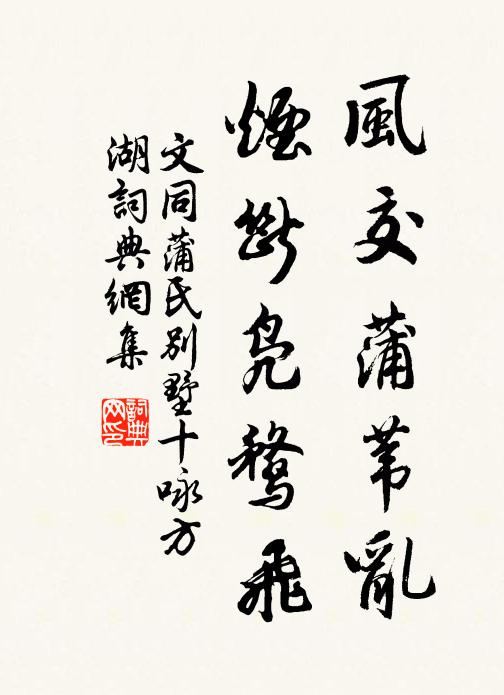 風交蒲葦亂
煙断鳧鶩飛
文同蒲氏別墅十咏方
湖詞典網集
詞典網印